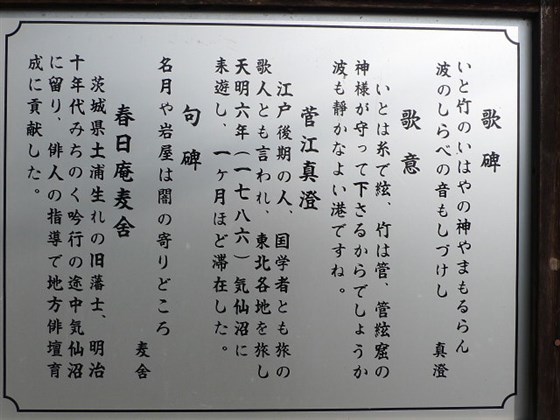 歌碑
いと竹のいはやの神やまもるらん
波のしらべの音もしづけし　真澄
歌意
いとは糸で絃、竹は管、管絃窟の
神様が守って下さるからでしょうか
波も静かなよい港ですね。
菅江真澄
江戸後期の人、国学者とも旅の
歌人とも言われ、東北各地を旅し
天明六年（一七八六）気仙沼に
来遊し、一ヶ月ほど滞在した。
句碑
名月や岩屋は闇の寄りどころ
麦舎
春日庵麦舎
茨城県土浦生れの旧藩士、明治
十年代みちのく吟行の途中気仙沼
に留り、俳人の指導で地方俳壇育
成に貢献した。